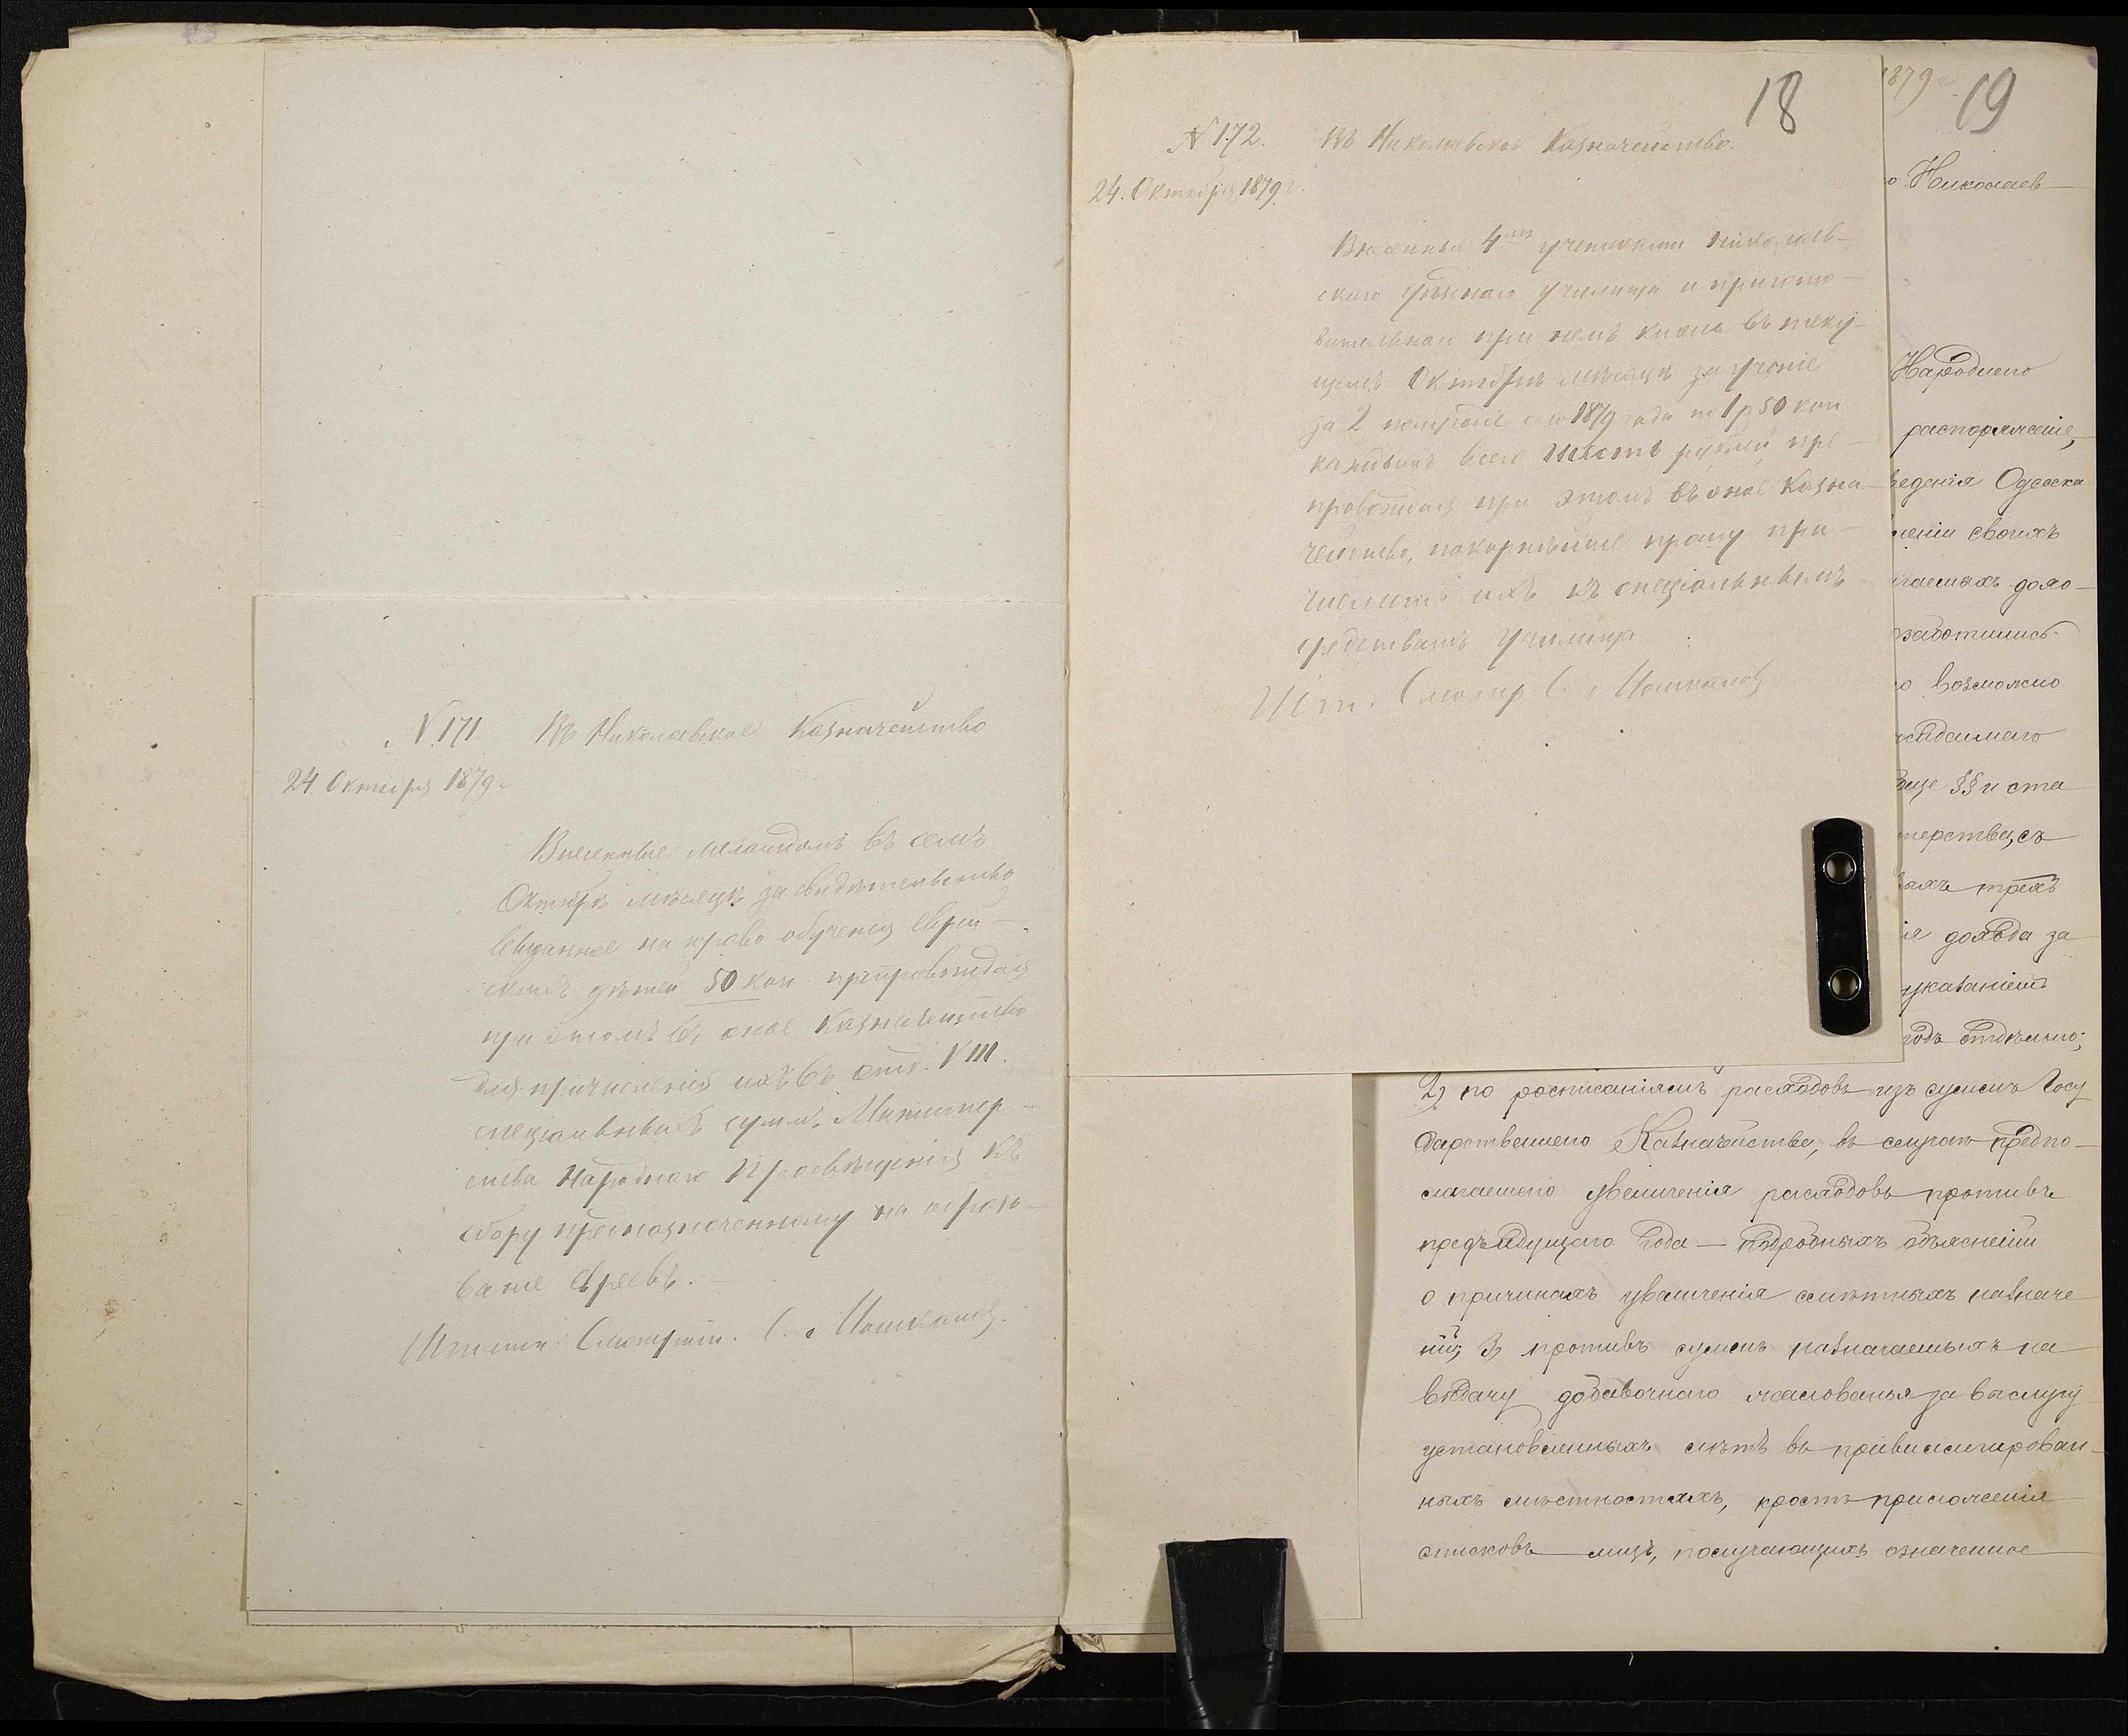 N 171. Въ Николаевское Казначейство
24. Октября 1879 г
Внесенные меламдомъ въ семъ
Октябрѣ мѣсяцѣ за свидѣтельство
на право обученія еврей-
скихъ дѣтей 50 коп препровождая
при этомъ въ оное Казначейство
для причисленія ихъ въ отд. VIII.
спеціальныхъ суммъ Министер-
ства Народнаго Просвѣщенія къ
сбору предназначенному на образо-
ваніе евреевъ.
Штатн. Смотрит. С.
18
N 172. Въ Николаевское Казначейство.
24. Октября 1879 г.
Внесенные 4мя учениками Николаев-
скаго уѣзднаго училища и пригото-
вительнаго при немъ класса въ теку-
щемъ Октябрѣ мѣсяцѣ за ученіе
за 2 полугодіе 1879 года по 1 р 50 коп
каждымъ всего шесть рублей, пре-
провождая при этомъ въ оное Казна-
чейство, покорнѣйше прошу при-
числить ихъ къ спеціальнымъ
средствамъ училища
Шт. Смотр С.
1879 г. 19
о Николаев-
Народнаго
распоряженіе,
веденія Одесска
леніи своихъ
чаемыхъ дохо-
заботились
о возможно
ожидаемаго
§§ и ста
терства, съ
ыхъ трехъ
ія дохода за
указаніемъ
годъ отдѣльно;
2, по росписаніямъ расходовъ изъ суммъ Госу
дарственнаго Казначейства, въ случаѣ предпо-
лагаемаго увеличенія расходовъ противъ
предъидущаго года — подробныхъ объясненій
о причинахъ увеличенія смѣтныхъ назначе
ній; 3, противъ суммъ назначаемыхъ на
выдачу добавочнаго жалованья за выслугу
установленныхъ лѣтъ въ привиллегирован-
ныхъ мѣстностяхъ, кромѣ приложенія
списковъ лицъ, получающихъ означенное